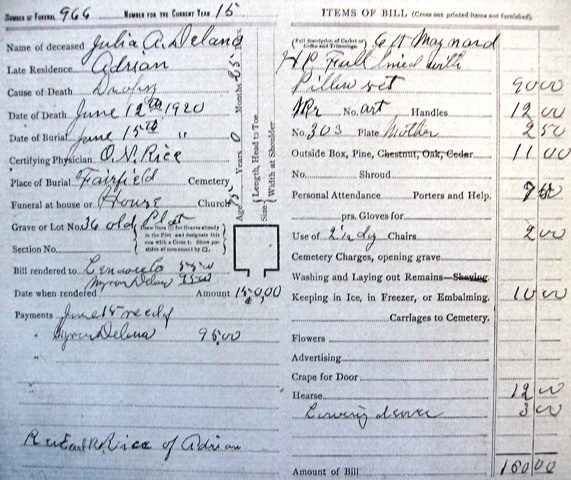 NUMBER OF FUNERAL 966 NUMBER FOR THE CURRENT YEAR 15
Name of deceased Julia A. Deland
Late Residence Adrian
Cause of Death Dropsy
Date of Death June 12th 1920
Date of Burial June 15th "
Certifying Physician O.N. Rice
Place of Burial Fairfield Cemetery
Funeral at house or House Church
Grave or Lot No. 36 old Plat
Draw lines if Graves already in the Plot and designate this one with a Cross †. Show position of monument by
Section No.
Bill rendered to
Myron Deland 95.00
Date when rendered Amount 150.00
Payments June 15 recd
" Myron Deland 95.00
"
"
of Adrian
Age 75 Years 0 Months
Size Length, Head to Toe
Width at Shoulder
ITEMS OF BILL (Cross out printed items not furnished).
(Full description of Casket or Coffin and Trimmings.) 6 ft Maynard
Full lined with
Pillow set 90 00
No. art Handles 12 00
No. 303 Plate Mother 2 50
Outside Box, Pine, Chestnut, Oak, Cedar 11 00
No. Shroud
Personal Attendance Porters and Help. 7 50
prs. Gloves for
Use of Chairs 2 00
Cemetery Charges, opening grave
Washing and Laying out Remains Shaving
Keeping in Ice, in Freezer, or Embalming. 10 00
Carriages to Cemetery.
Flowers
Advertising
Crape for Door
Hearse 12 00
Lowering device 3 00
Amount of Bill 150 00